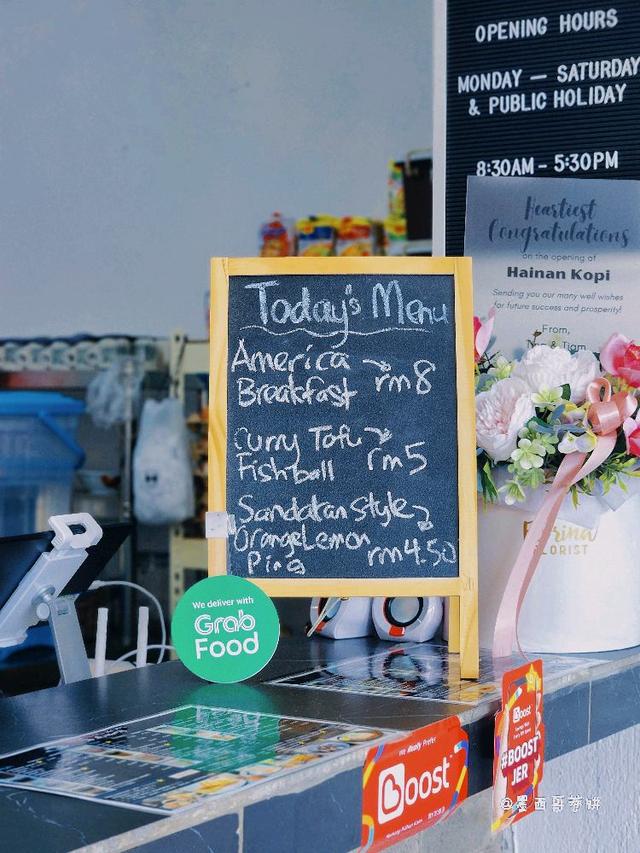 OPENING HOURS
MONDAY — SATURDAY
& PUBLIC HOLIDAY
8:30AM - 5:30PM
Heartiest
Congratulations
on the opening of
Hainan Kopi
Sending you our many well wishes
for future success and prosperity!
From,
Today's Menu
America
Breakfast rm8
Curry Tofu
Fishball rm5
Sandakan style
Orange Lemon
Ping rm4.50
We deliver with
Grab
Food
FLORIST
We Really Prefer
Boost
Boost
#BOOST
JER
@墨西哥卷饼